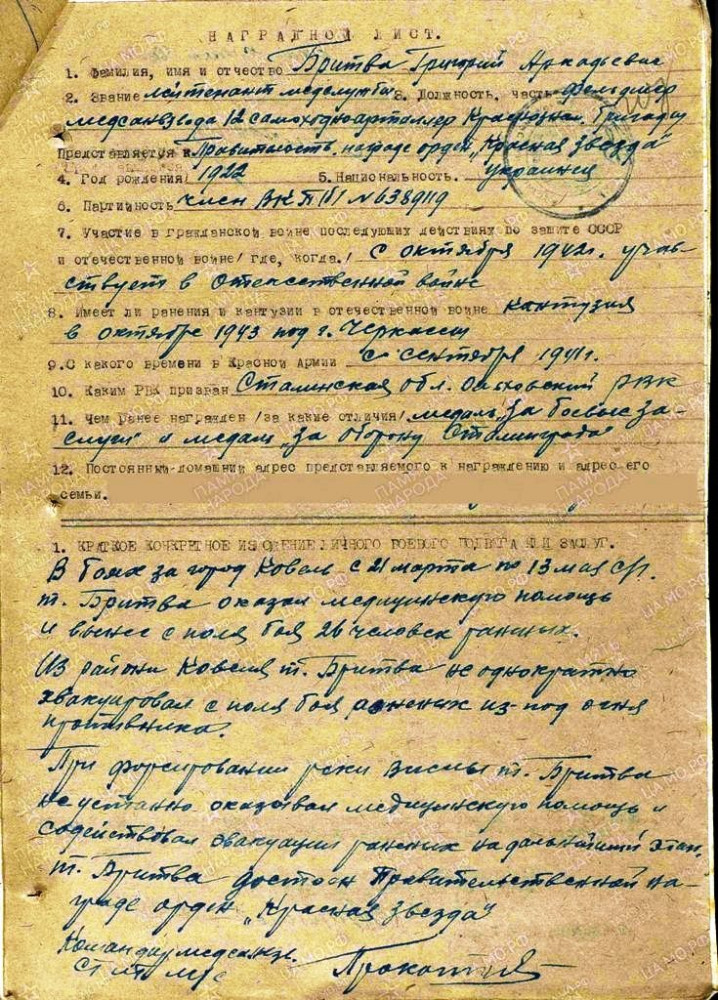 НАГРАДНОЙ ЛИСТ.
1. Фамилия, имя и отчество Бритва Григорий Аркадьевич
2. Звание лейтенант медслужбы 3. Должность, часть фельдшер
медсанвзвода 12 самоходно артиллер Краснознам. Бригады
Представляется к Правительств. награде орден "Красная звезда"
4. Год рождения 1922 5. Национальность. украинец
6. Партийность член ВКП(б) № 6389119
7. Участие в гражданской войне последующих действиях по защите СССР
и отечественной войне/ где, когда./ с октября 1942г. учав-
ствует в Отечественной войне
8. Имеет ли ранения и кантузии в отечественной войне кантузия
в октябре 1943 под г. Черкассы
9. С какого времени в Красной Армии с сентября 1941г.
10. Каким РВК призван Сталинская обл. РВК
11. Чем ранее награжден /за какие отличия/ медаль "за боевые за-
слуги" и медаль "за оборону Сталинграда"
12. Постоянный домашний адрес представляемого к награждению и адрес его
семьи.
1. КРАТКОЕ КОНКРЕТНОЕ ИЗЛОЖЕНИЕ ЛИЧНОГО БОЕВОГО ПОДВИГА ИЛИ ЗАСЛУГ.
В боях за город Ковель с 21 марта по 13 мая с/г.
т. Бритва оказал медицинскую помощь
и вынес с поля боя 26 человек раненых.
Из района Ковеля т. Бритва не однократно
эвакуировал с поля боя раненых из-под огня
противника.
При форсировании реки Висла т. Бритва
не устанно оказывал медицинскую помощь и
содействовал эвакуации раненых на дальнейший этап.
т. Бритва достоен Правительственной на-
граде орден "Красная звезда"
Командир медсанвзв.
ст л-т м/с